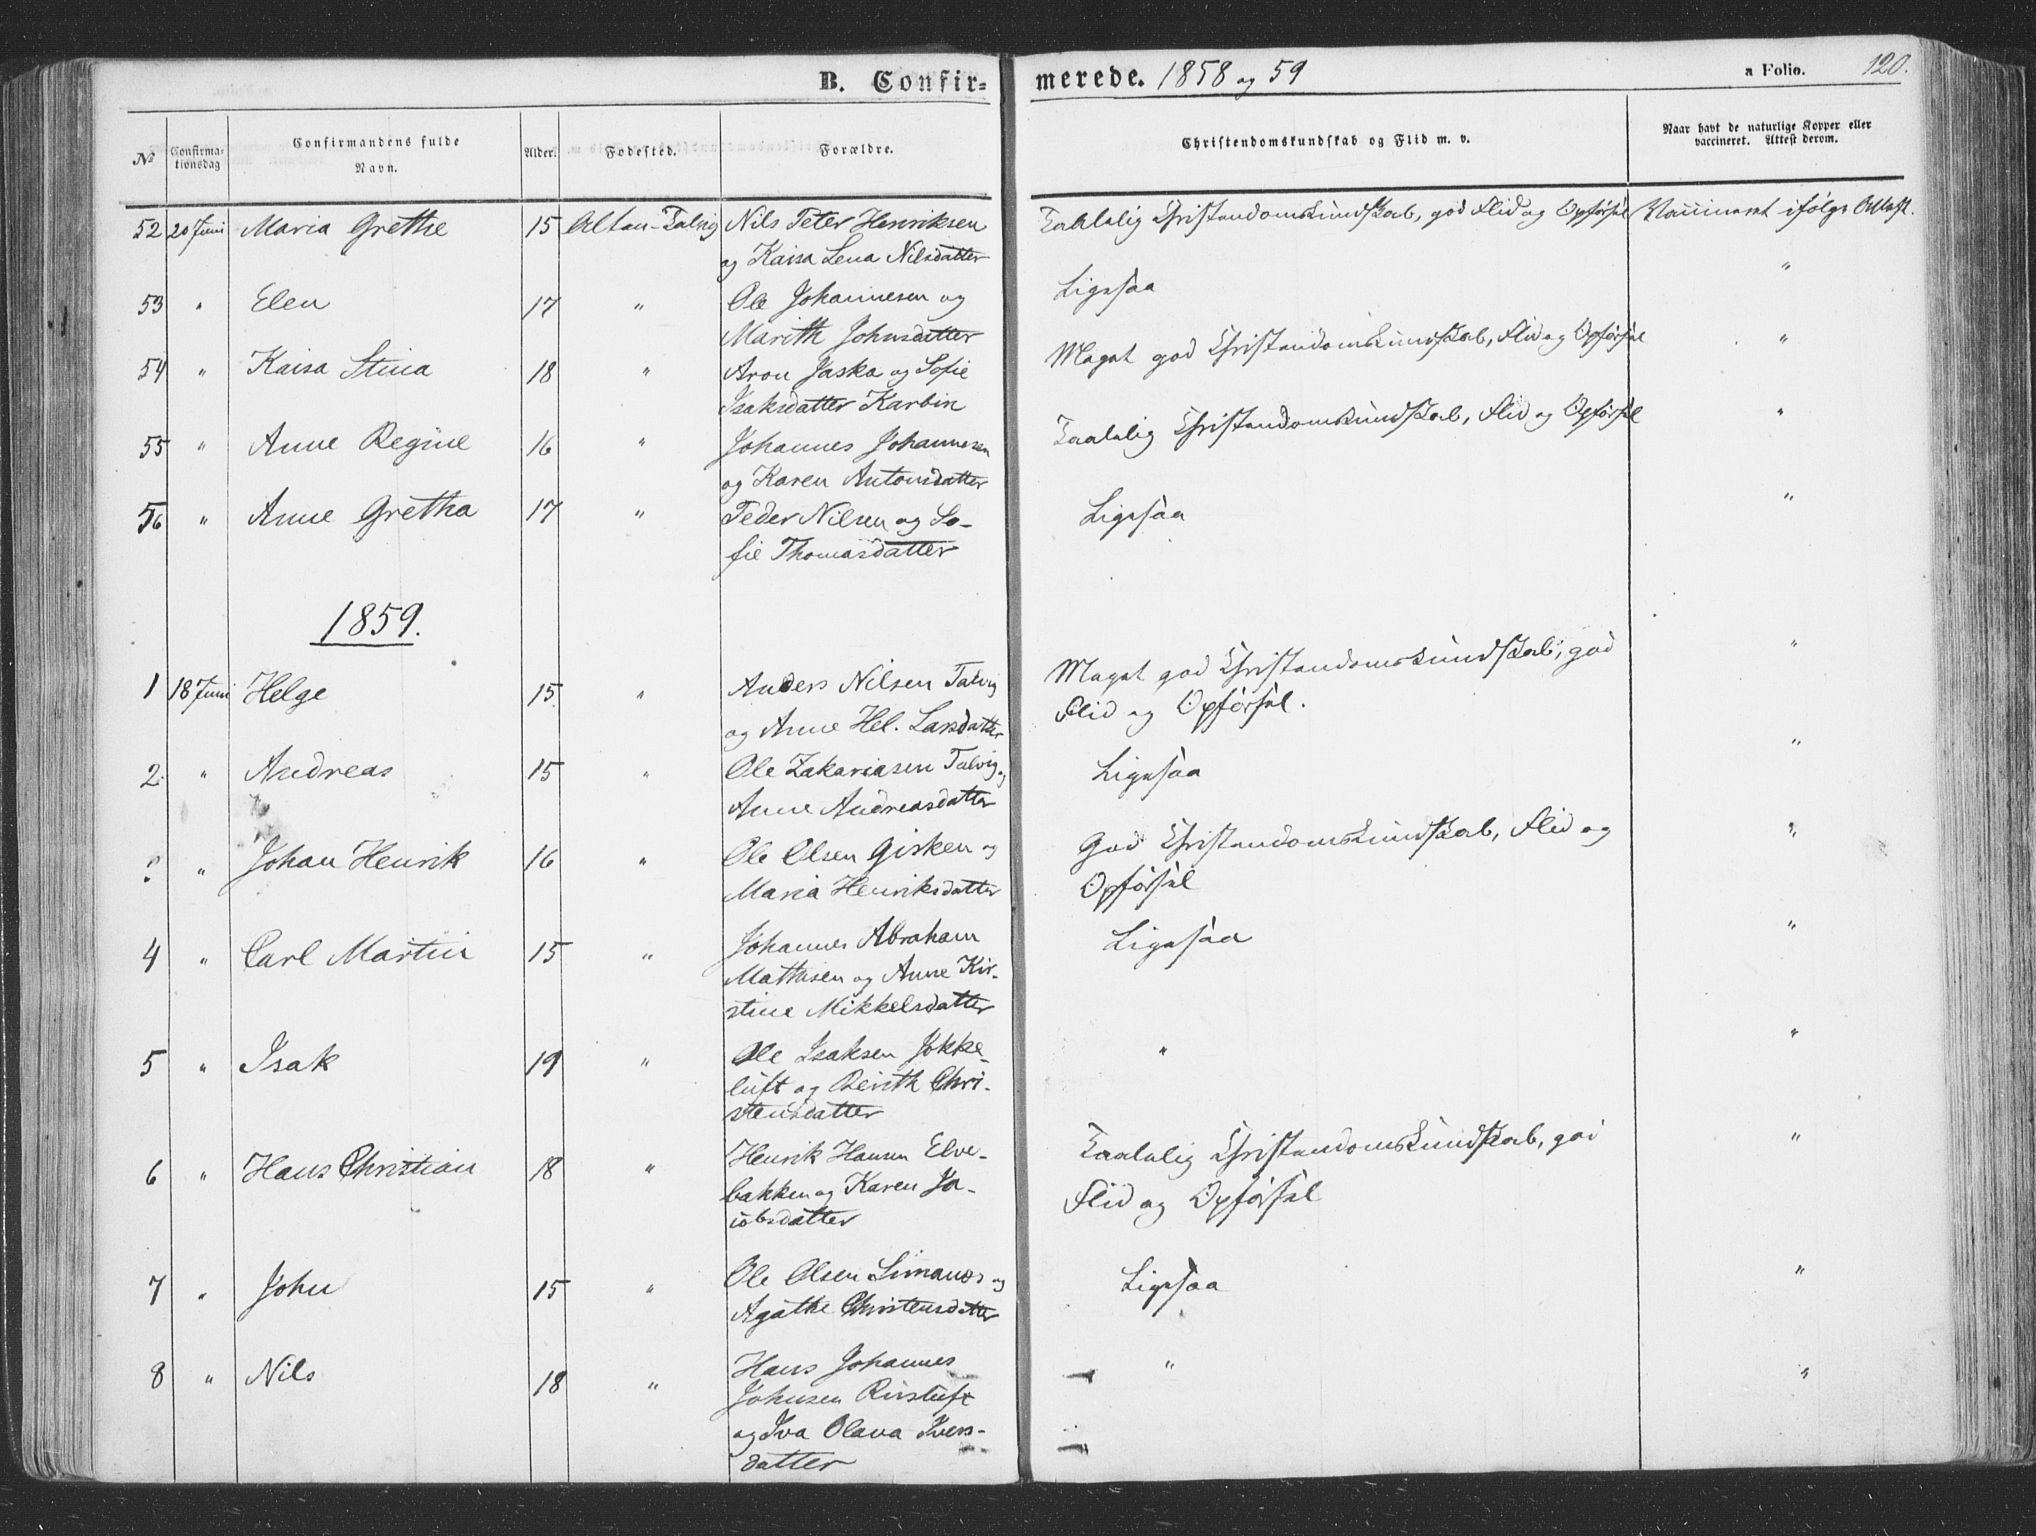 B. Confirmerede. 1858 og 59
a Folio. 120.
№ | Confirmationsdag | Confirmandens fulde Navn. | Alder. | Fødested. | Forældre. | Christendomskundskab og Flid m. v. | Naar havt de naturlige Kopper eller vaccineret. Attest derom.
52 20 Juni Maria Grethe 15 Alten-Talvig Nils Peter Henriksen Taalelig Christendomskundskab, god Flid og Opførsel Vaccineret ifølge Attest.
og Kaisa Lena Nilsdatter "
53 " Elen 17 " Ole Johannesen og Ligesaa
Marith Johnsdatter
54 " Kaisa Stina 18 " Aron Jaska og Sofie Meget god Christendomskundskab, Flid og Opførsel "
Isaksdatter Karbin
55 " Anne Regine 16 " Johannes Johannesen Taalelig Christendomskundskab, Flid og Opførsel "
og Karen Antonsdatter
56 " Anne Gretha 17 " Peder Nilsen og So- Ligesaa "
fie Thomasdatter
1859.
1 18 Juni Helge 15 " Anders Nilsen Talvig Meget god Christendomskundskab, god "
og Anne Hel. Larsdatter Flid og Opførsel.
2 " Andreas 15 " Ole Zakariasen Talvig og Ligesaa "
Anne Andreasdatter
" Johan Henrik 16 " Ole Olsen Girken og God Christendomskundskab, Flid og "
Maria Henriksdatter Opførsel
4 " Carl Martin 15 " Johannes Abraham Ligesaa "
Mathisen og Anne Kir-
stine Mikkelsdatter
5 " Isak 19 " Ole Isaksen Jokke- " "
luft og Berith Chri-
stensdatter
6 " Hans Christian 18 " Henrik Hansen Elve- Taalelig Christendomskundskab, god "
bakken og Karen Ja- Flid og Opførsel
cobsdatter
7 " John 15 " Ole Olsen Simanes og Ligesaa "
Agathe Christensdatter
8 " Nils 18 " Hans Johannes " "
Johnsen Rivsluft
og Iva Olava Ivers-
datter